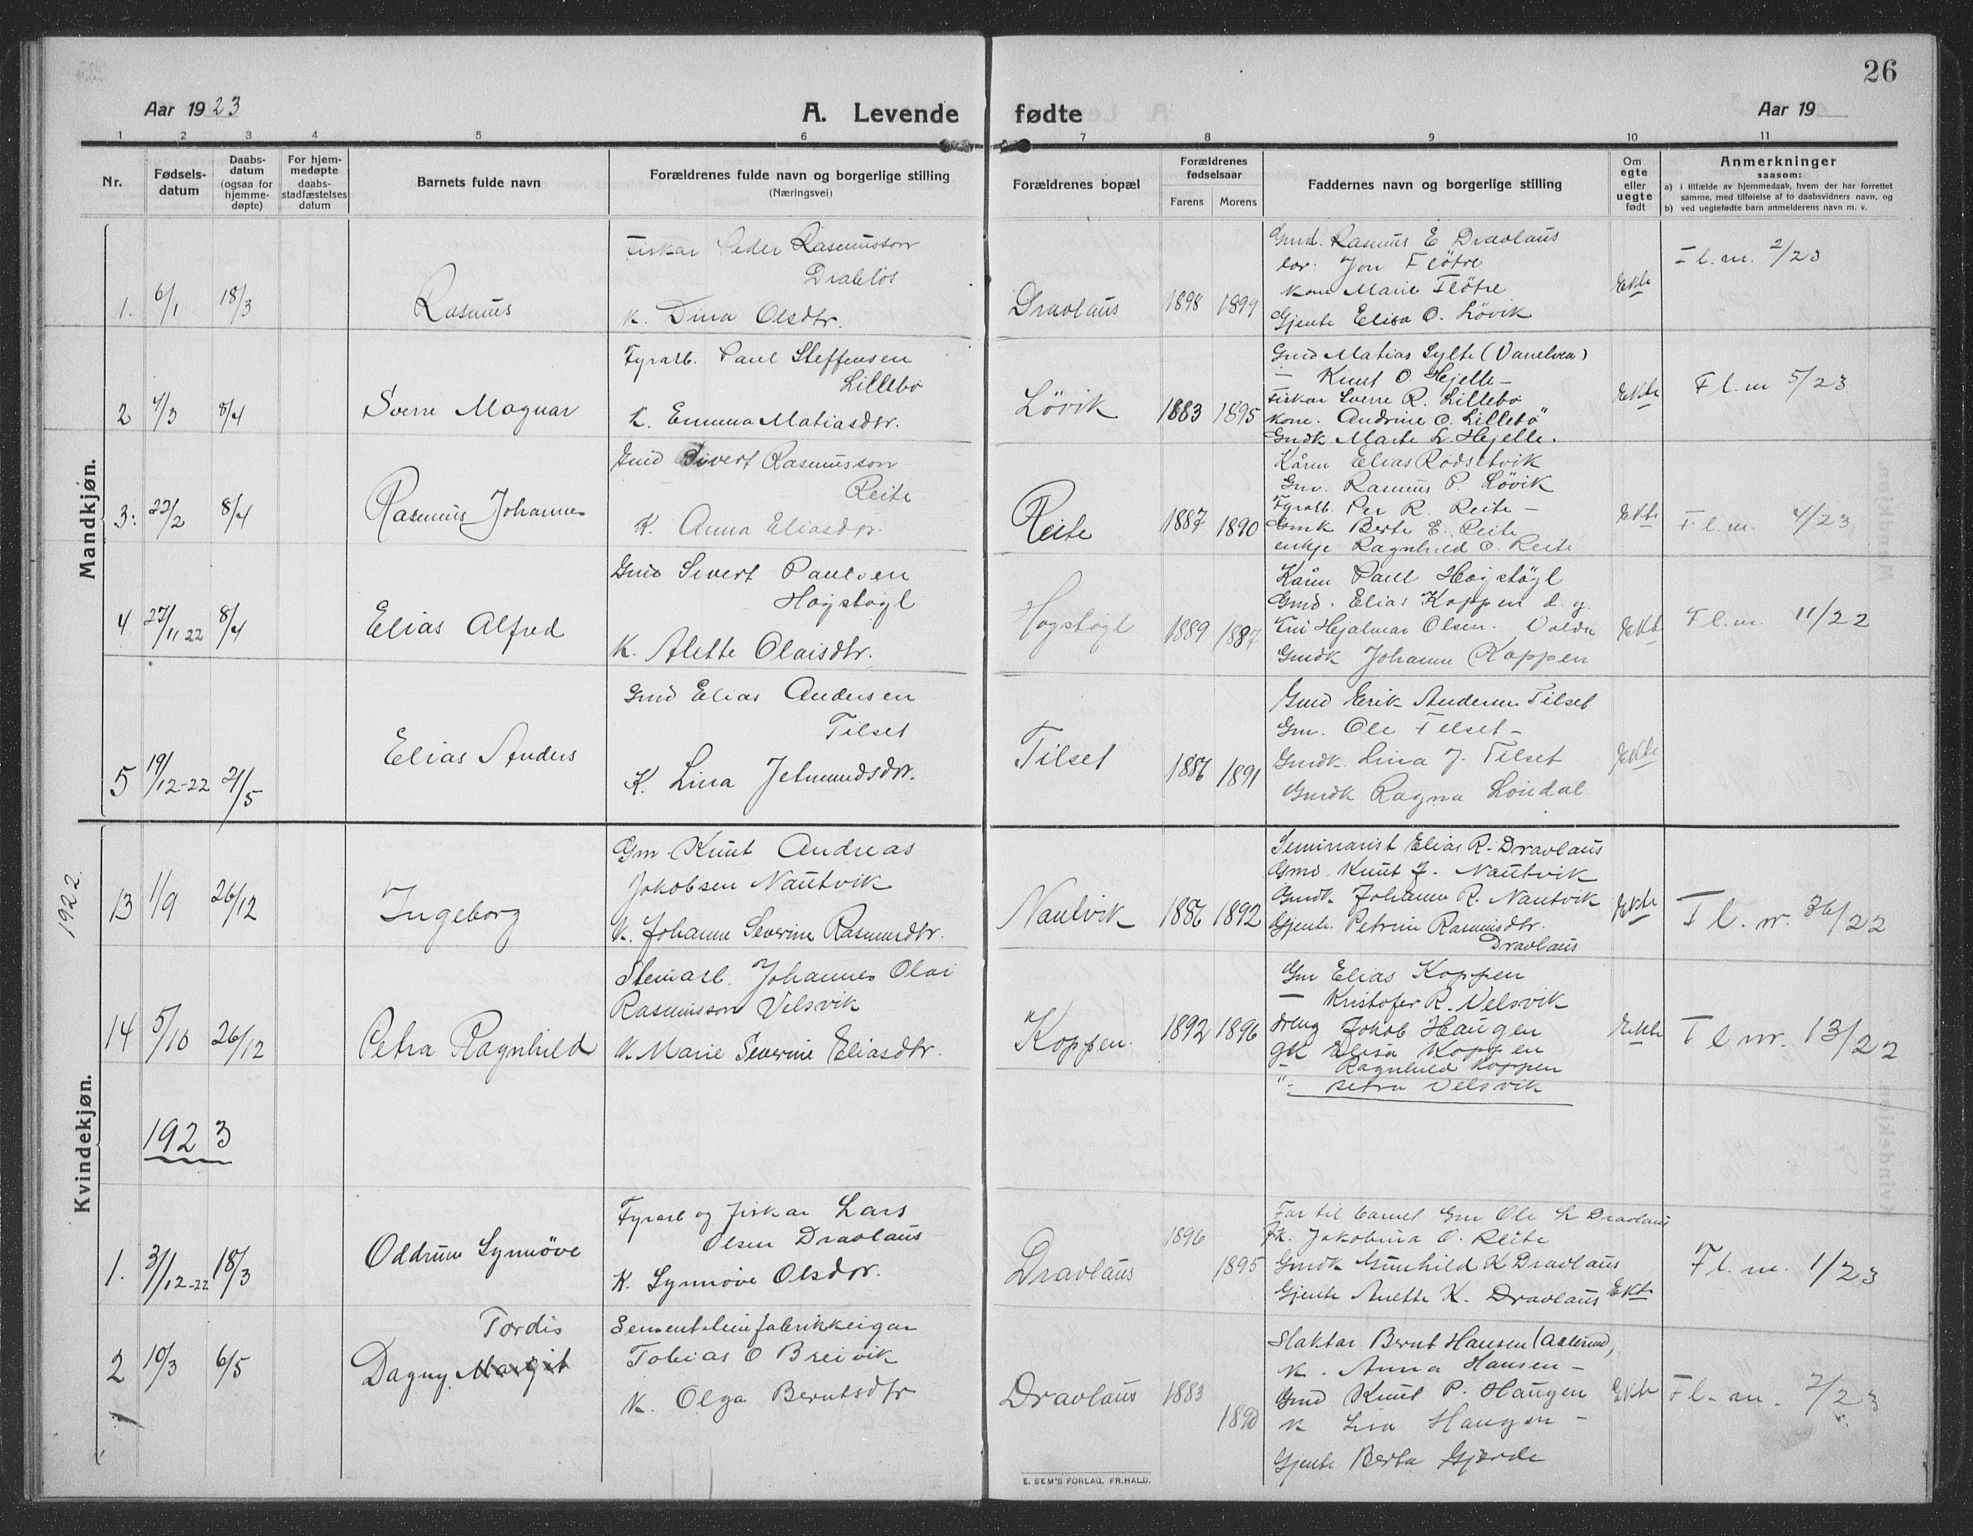 26
Aar 1923
A. Levende fødte
Aar 19
1 2 3 4 5 6 7 8 9 10 11
Nr.
Fødsels-
datum
Daabs-
datum
(ogsaa for
hjemme-
døpte)
For hjem-
medøpte
daabs-
stadfæstelses
datum
Barnets fulde navn
Forældrenes fulde navn og borgerlige stilling
(Næringsvei)
Forældrenes bopæl
Forældrenes
fødselsaar
Farens Morens
Faddernes navn og borgerlige stilling
Om
egte
eller
uegte
født
Anmerkninger
saasom:
a) i tilfælde av hjemmedaab, hvem der har forrettet
samme, med tilføielse af to daabsvidners navn, og
b) ved uegtefødte barn anmelderens navn m. v.
Mandkjøn.
1. 6/1 18/3
Rasmus
Fiskar Peder Rasmusson
Drabløs
K. Dina Olsdtr.
Dravlaus
1898 1899
Gmd. Rasmus E Dravlaus
Jon Fløtre
Kone Marie Fløtre
Gjente Elisa O. Løvik
Ekte
Fl. nr. 2/23
2 4/3 8/4
Sverre Magnar
Fyrarb. Paul Steffensen
Lillebø
K. Emma Matiasdtr.
Løvik
1883 1895
Gmd Matias Sylte (Vanelven)
— Knut O. Hjelle —
Fiskar Sverre R. Lillebø
Kone. Andrine O. Lillebø
Gmdk Marte L. Hjelle.
Ekte
Fl. nr 5/23
3. 22/2 8/4
Rasmus Johannes
Gmd Sivert Rasmusson
Reite
K. Anna Eliasdtr.
Reite
1887 1890
Kårm Elias Rødsetvik
Gm. Rasmus P. Løvik
Fyrarb. Per R. Reite —
Gmk Berte E. Reite
enkje Ragnhild O. Reite
Ekte
Fl. nr. 4/23
4. 27/11 22 8/4
Elias Alfred
Gmd Sivert Paulsen
Høgstøgl
K. Alette Olaisdtr.
Høgstøgl
1889 1887
Kårm Paul Høgstøgl
Gmd. Elias Koppen d. y.
Hjalmar Olsen. Volda
Gmdk Johanne Koppen
Ekte
Fl. nr. 11/22
5 19/12-22 21/5
Elias Anders
Gmd Elias Andersen
Tilset
K. Lina Jetmundsdtr.
Tilset
1886 1891
Gmd Eerik Andersen Tilset
Gm. Ole Tilset —
Gmdk. Lina J. Tilset
Gmdk Ragna Løndal
Ekte
1922.
Kvindekjøn.
13 1/9 26/12
Ingeborg
Gm. Knut Andreas
Jakobsen Nautvik
K. Johanne Severine Rasmusdtr.
Nautvik
1886 1892
Seminarist Elias R. Dravlaus
Gmd. Knut J. Nautvik
Gmdk. Johanne R. Nautvik
Gjente. Petrine Rasmusdtr.
Dravlaus
Ekte
Fl. nr. 36/22
14 5/10 26/12
Petra Ragnhild
Steinarb. Johannes Olai
Rasmusson Velsvik
K. Marie Severine Eliasdtr.
Koppen.
1892 1896
Gm Elias Koppen
— Kristofer R. Velsvik
dreng Jakob Haugen
gk Elisa Koppen
— Ragnhild Koppen
" Petra Velsvik
Ekte
Fl nr. 13/22
1923
1. 3/12-22 18/3
Oddrun Synnøve
Fyrarb og fiskar Lars
Olsen Dravlaus
K. Synnøve Olsdtr.
Dravlaus
1896 1895
Far til barnet Gm Ole L Dravlaus
Jakobina O. Reite
Gmdk Gunhild K Dravlaus
Gjente Anette K. Dravlaus
Ekte
Fl. nr. 1/23
2 10/3 6/5
Tordis
Dagny Margit
Sementsteinfabrikkeigar
Tobias O Breivik
K. Olga Berntsdtr
Dravlaus
1883 1890
Slaktar Bernt Hansen (Aalesund)
K. Anna Hansen —
Gmd Knut P. Haugen
K Lina Haugen —
Gjente Berta Gjerde
Ekte
Fl. nr. 2/23
E. SEM'S FORLAG. FR.HALD.